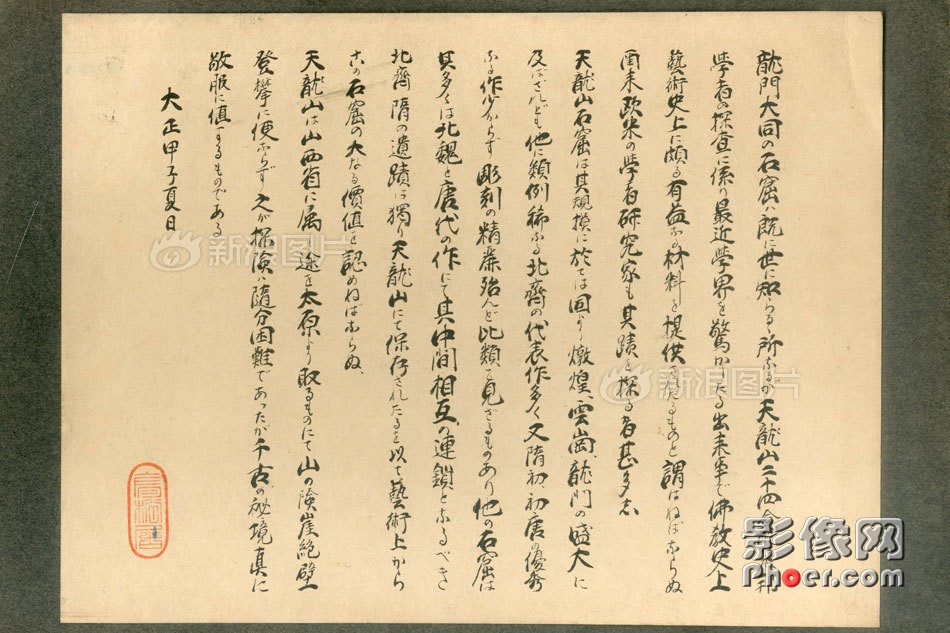 龍門大同の石窟ハ既に世に知らるゝ所なるが天龍山二十四
學者の探査に係り最近學界を驚かしたる出来事で佛教史上
藝術史上に頗る有益なる材料を提供されたるものと謂はねばならぬ
爾来欧米の學者研究家も其蹟を探る者甚多し
天龍山石窟は其規模に於ては固より燉煌、雲崗、龍門の盛大に
及ばざれども他に類例稀なる北齊の代表作多く又隋初初唐の優秀
なる作少からず彫刻の精粹殆んど比類を見ざるものあり他の石窟は
其多くは北魏と唐代の作にて其中間相互の連鎖となるべき
北齊隋の遺蹟は獨り天龍山にて保存されたるを以て藝術上から
この石窟の大なる價値を認めねばならぬ、
天龍山は山西省に属し途を太原より取るものにて山の険崖絶壁
登攀に便ならず之が探険ハ隨分困難であつたが千古の秘境真に
敬服に値するものである
大正甲子夏日
新浪图片
新浪图片
影像网
Phoer.com